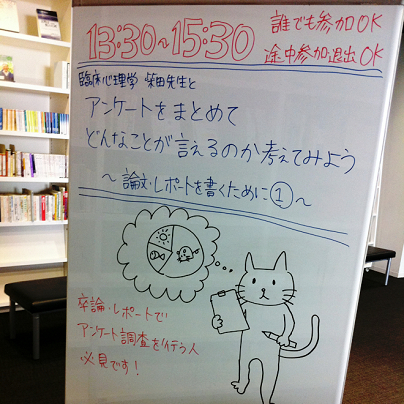 13:30〜15:30
誰でも参加OK
途中参加退出OK
臨床心理学 柴田先生と
アンケートをまとめて
どんなことが言えるのか考えてみよう
〜論文・レポートを書くために①〜
卒論・レポートで
アンケート調査を行う人
必見です!